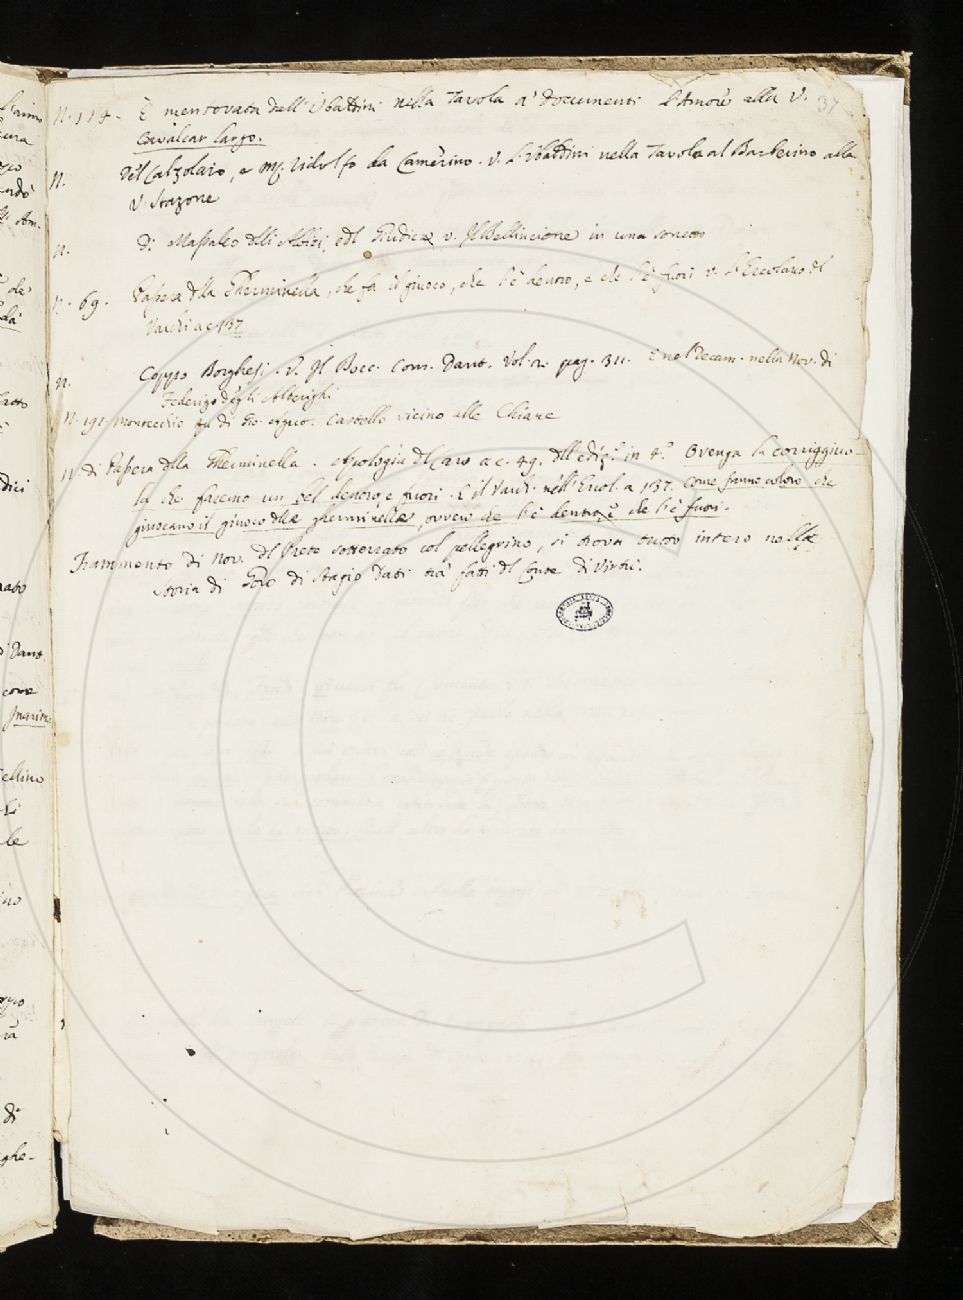 37
N. 114. È mentovata dall' Ubaldini nella Tavola a' Documenti d'Amore alla V.
Cavalcar largo.
N. Del Calzolaio, e M. Ridolfo da Camerino. V. l'Ubaldini nella Tavola al Barberino alla
V. Stazone
N. di Maffaleo delli Albizi, edl Giudice v. Il Bellincione in una sonetto
N. 69. Vapera dlla Gherminella, che fa il giuoco, che l'è dentro, e che l'è fuori v. l'Ercolano dl
Varchi a c 137
N. Coppo Borghesi. V. Il Bocc. Com. Dant. Vol. 2. pag. 311. E nel Decam. nella Nov. di
Federigo degli Alberighi
N. 191. Montecchio fu di Gio. Aguto. Castello vicino alle Chiane
N. di Vapera dlla Gherminella. Apologia dl Caro a c. 49. dll' ediz. in 4.º Ovenga la coreggiuo-
la che faceno un bel dentro e fuori. E il Varchi nell' Ercol. a 137. Come fanno coloro che
giuocano il giuoco dlle gherminelle, ovvero che l'è dentro, e che l'è fuori.
Frammento di Nov. dl Prete sotterrato col pellegrino, si trova tutto intero nelle
storia di Goro di Stagio Dati tra' fatti dl Conte di Virtù.